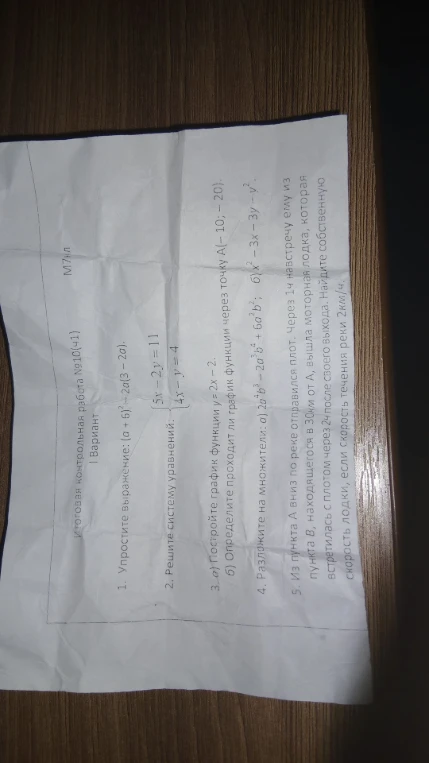 Итоговая контрольная работа №10(ч1) М7кл
I Вариант
1. Упростите выражение: (a + 6)² – 2a(3 – 2a).
2. Решите систему уравнений: {5x – 2y = 11
{4x – y = 4
3. а) Постройте график функции y = 2x – 2.
б) Определите проходит ли график функции через точку А(– 10; – 20).
4. Разложите на множители: а) 2a⁴b³ – 2a³b⁴ + 6a²b²; б) x² – 3x – 3y – y².
5. Из пункта А вниз по реке отправился плот. Через 1ч навстречу ему из
пункта В, находящегося в 30км от А, вышла моторная лодка, которая
встретилась с плотом через 2ч после своего выхода. Найдите собственную
скорость лодки, если скорость течения реки 2км/ч.